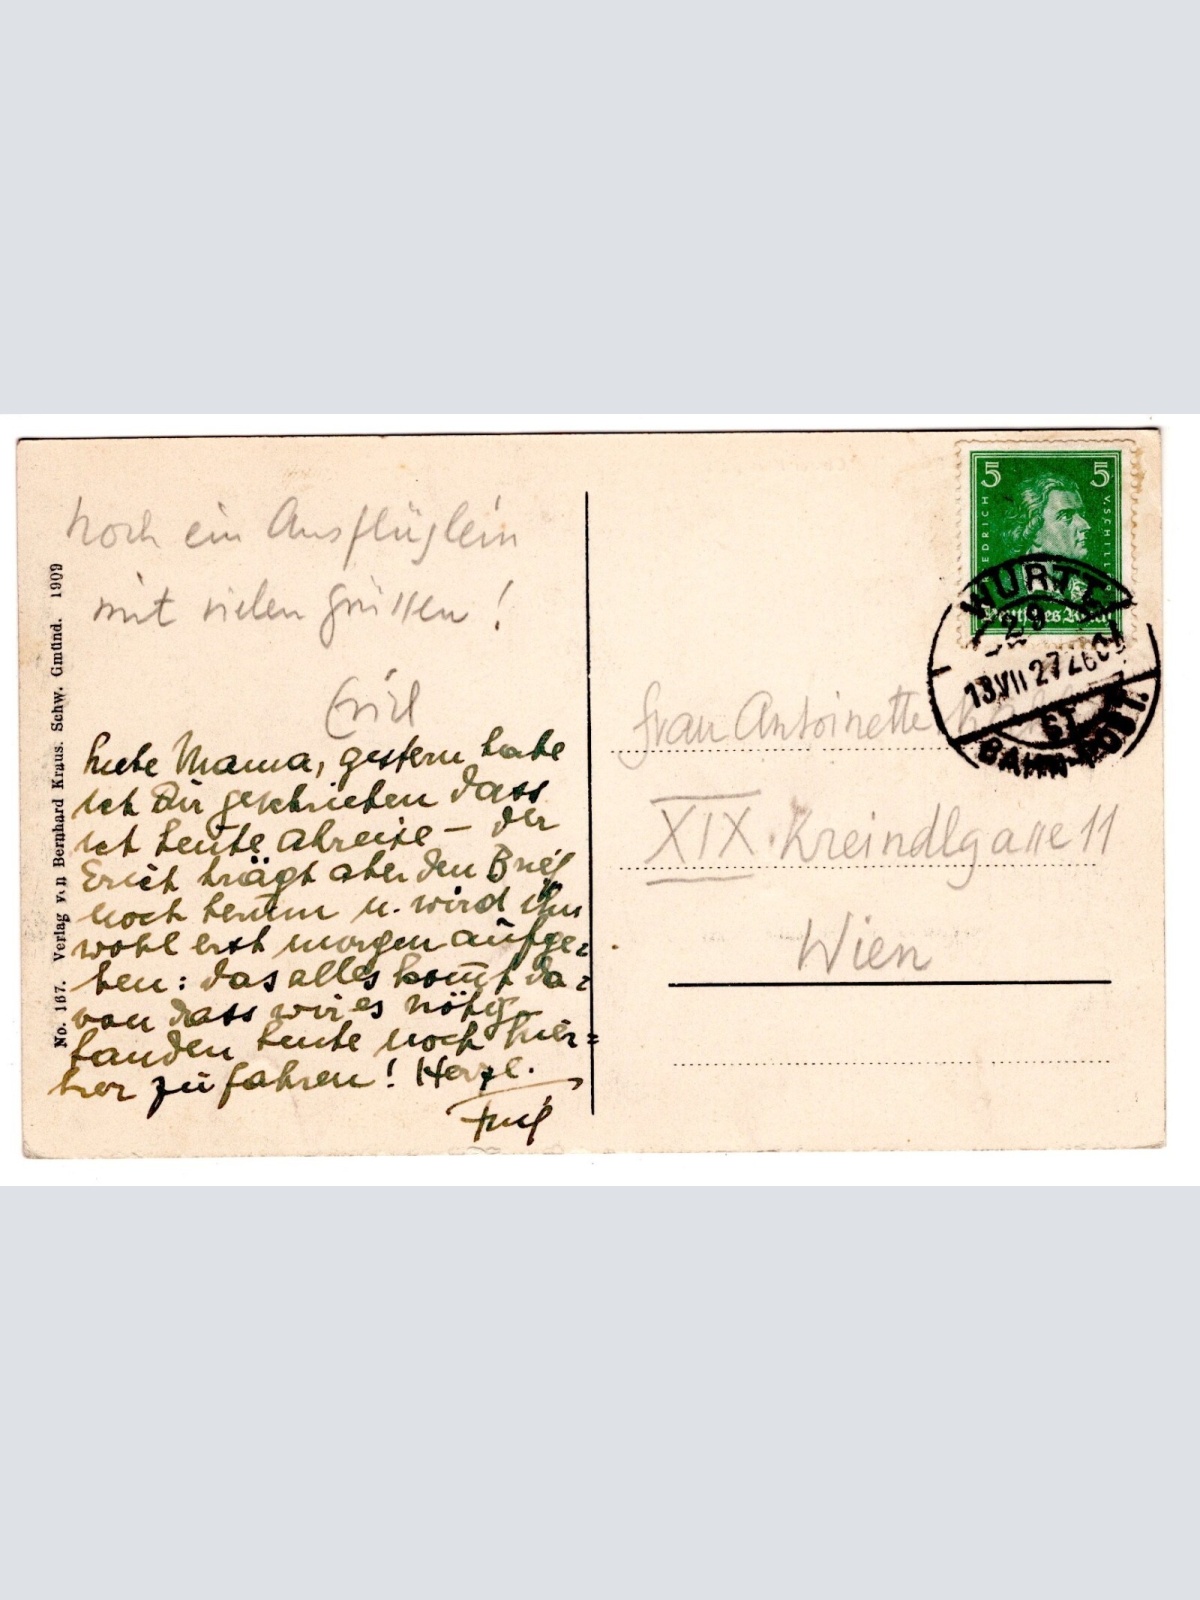 No. 167. Verlag von Bernhard Kraus. Schw. Gmünd. 1909
noch ein Ausflüglein
mit vielen Grüssen!
Erich
Liebe Mama, gestern habe
ich Dir geschrieben dass
ich heute abreise – der
Erich trägt aber den Brief
noch herum u. wird ihn
wohl erst morgen aufge=
ben: das alles kommt da=
von dass wir es nötig
fanden heute noch hier=
her zu fahren! Herzl.
5 5
FRIEDRICH V. SCHILLER
Deutsches Reich
WÜRTT.
13 VII 27
BAHNPOST.
Frau Antoinette
XIX. Kreindlgasse 11
Wien